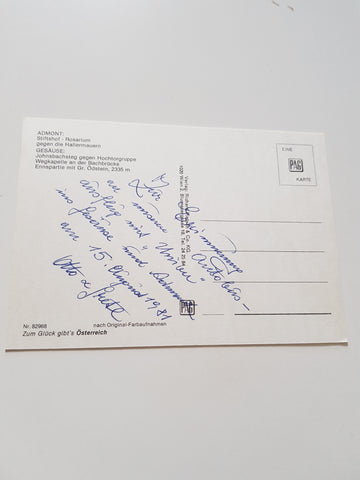 ADMONT:
Stiftshof - Rosarium
gegen die Hallermauern
GESÄUSE:
Johnsbachsteg gegen Hochtorgruppe
Wegkapelle an der Bachbrücke
Ennspartie mit Gr. Ödstein, 2335 m
EINE
PAG
KARTE
Zur Erinnerung
an unseren Autobus-
ausflug mit "Union"
ins Gesäuse und Admont
am 15. August 1981
Otto &
PAG
Nr. 82968
nach Original-Farbaufnahmen
Zum Glück gibt's Österreich